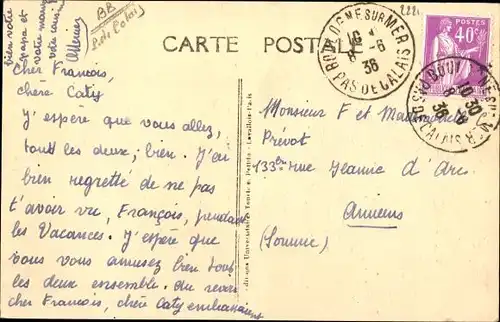 bien votre
papa et
votre maman
votre cousin
BR
P. de Calais
CARTE POSTALE
BOULOGNE SUR MER
8 - 6
36
PAS DE CALAIS
POSTES
40c
10 30
8 - 6
36
Cher François,
chère Caty
J'espère que vous allez,
tout les deux, bien. J'ai
bien regretté de ne pas
t'avoir vu, François, pendant
les Vacances. J'espère que
vous vous amusez bien tous
les deux ensemble. Au revoir
cher François, chère Caty embrassons
Levallois-Paris
Monsieur F et Mademoiselle
Prévot
133 ter rue Jeanne d'Arc.
Amiens
(Somme)